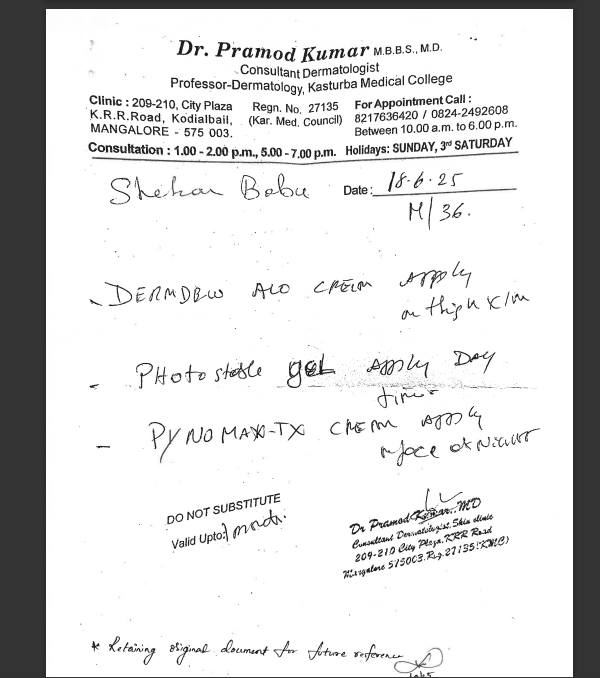 Dr. Pramod Kumar M.B.B.S., M.D.
Consultant Dermatologist
Professor-Dermatology, Kasturba Medical College
Clinic : 209-210, City Plaza
K.R.R.Road, Kodialbail,
MANGALORE - 575 003.
Regn. No. 27135
(Kar. Med. Council)
For Appointment Call :
8217636420 / 0824-2492608
Between 10.00 a.m. to 6.00 p.m.
Consultation : 1.00 - 2.00 p.m., 5.00 - 7.00 p.m. Holidays: SUNDAY, 3rd SATURDAY
Shekar Babu Date: 18-6-25
M/36.
- CREAM APPLY
on thigh
- PHOTOstable gel APPLY DAY
time
- PYNOMAX-TX CREAM APPLY
face at NIGHT
DO NOT SUBSTITUTE
Valid Upto: 1 month.
Dr Pramod Kumar. MD
Consultant Dermatologist, Skin clinic
209-210 City Plaza, KRR Road
Mangalore 575003. Reg. 27135 (KMC)
* Retaining original document for future reference